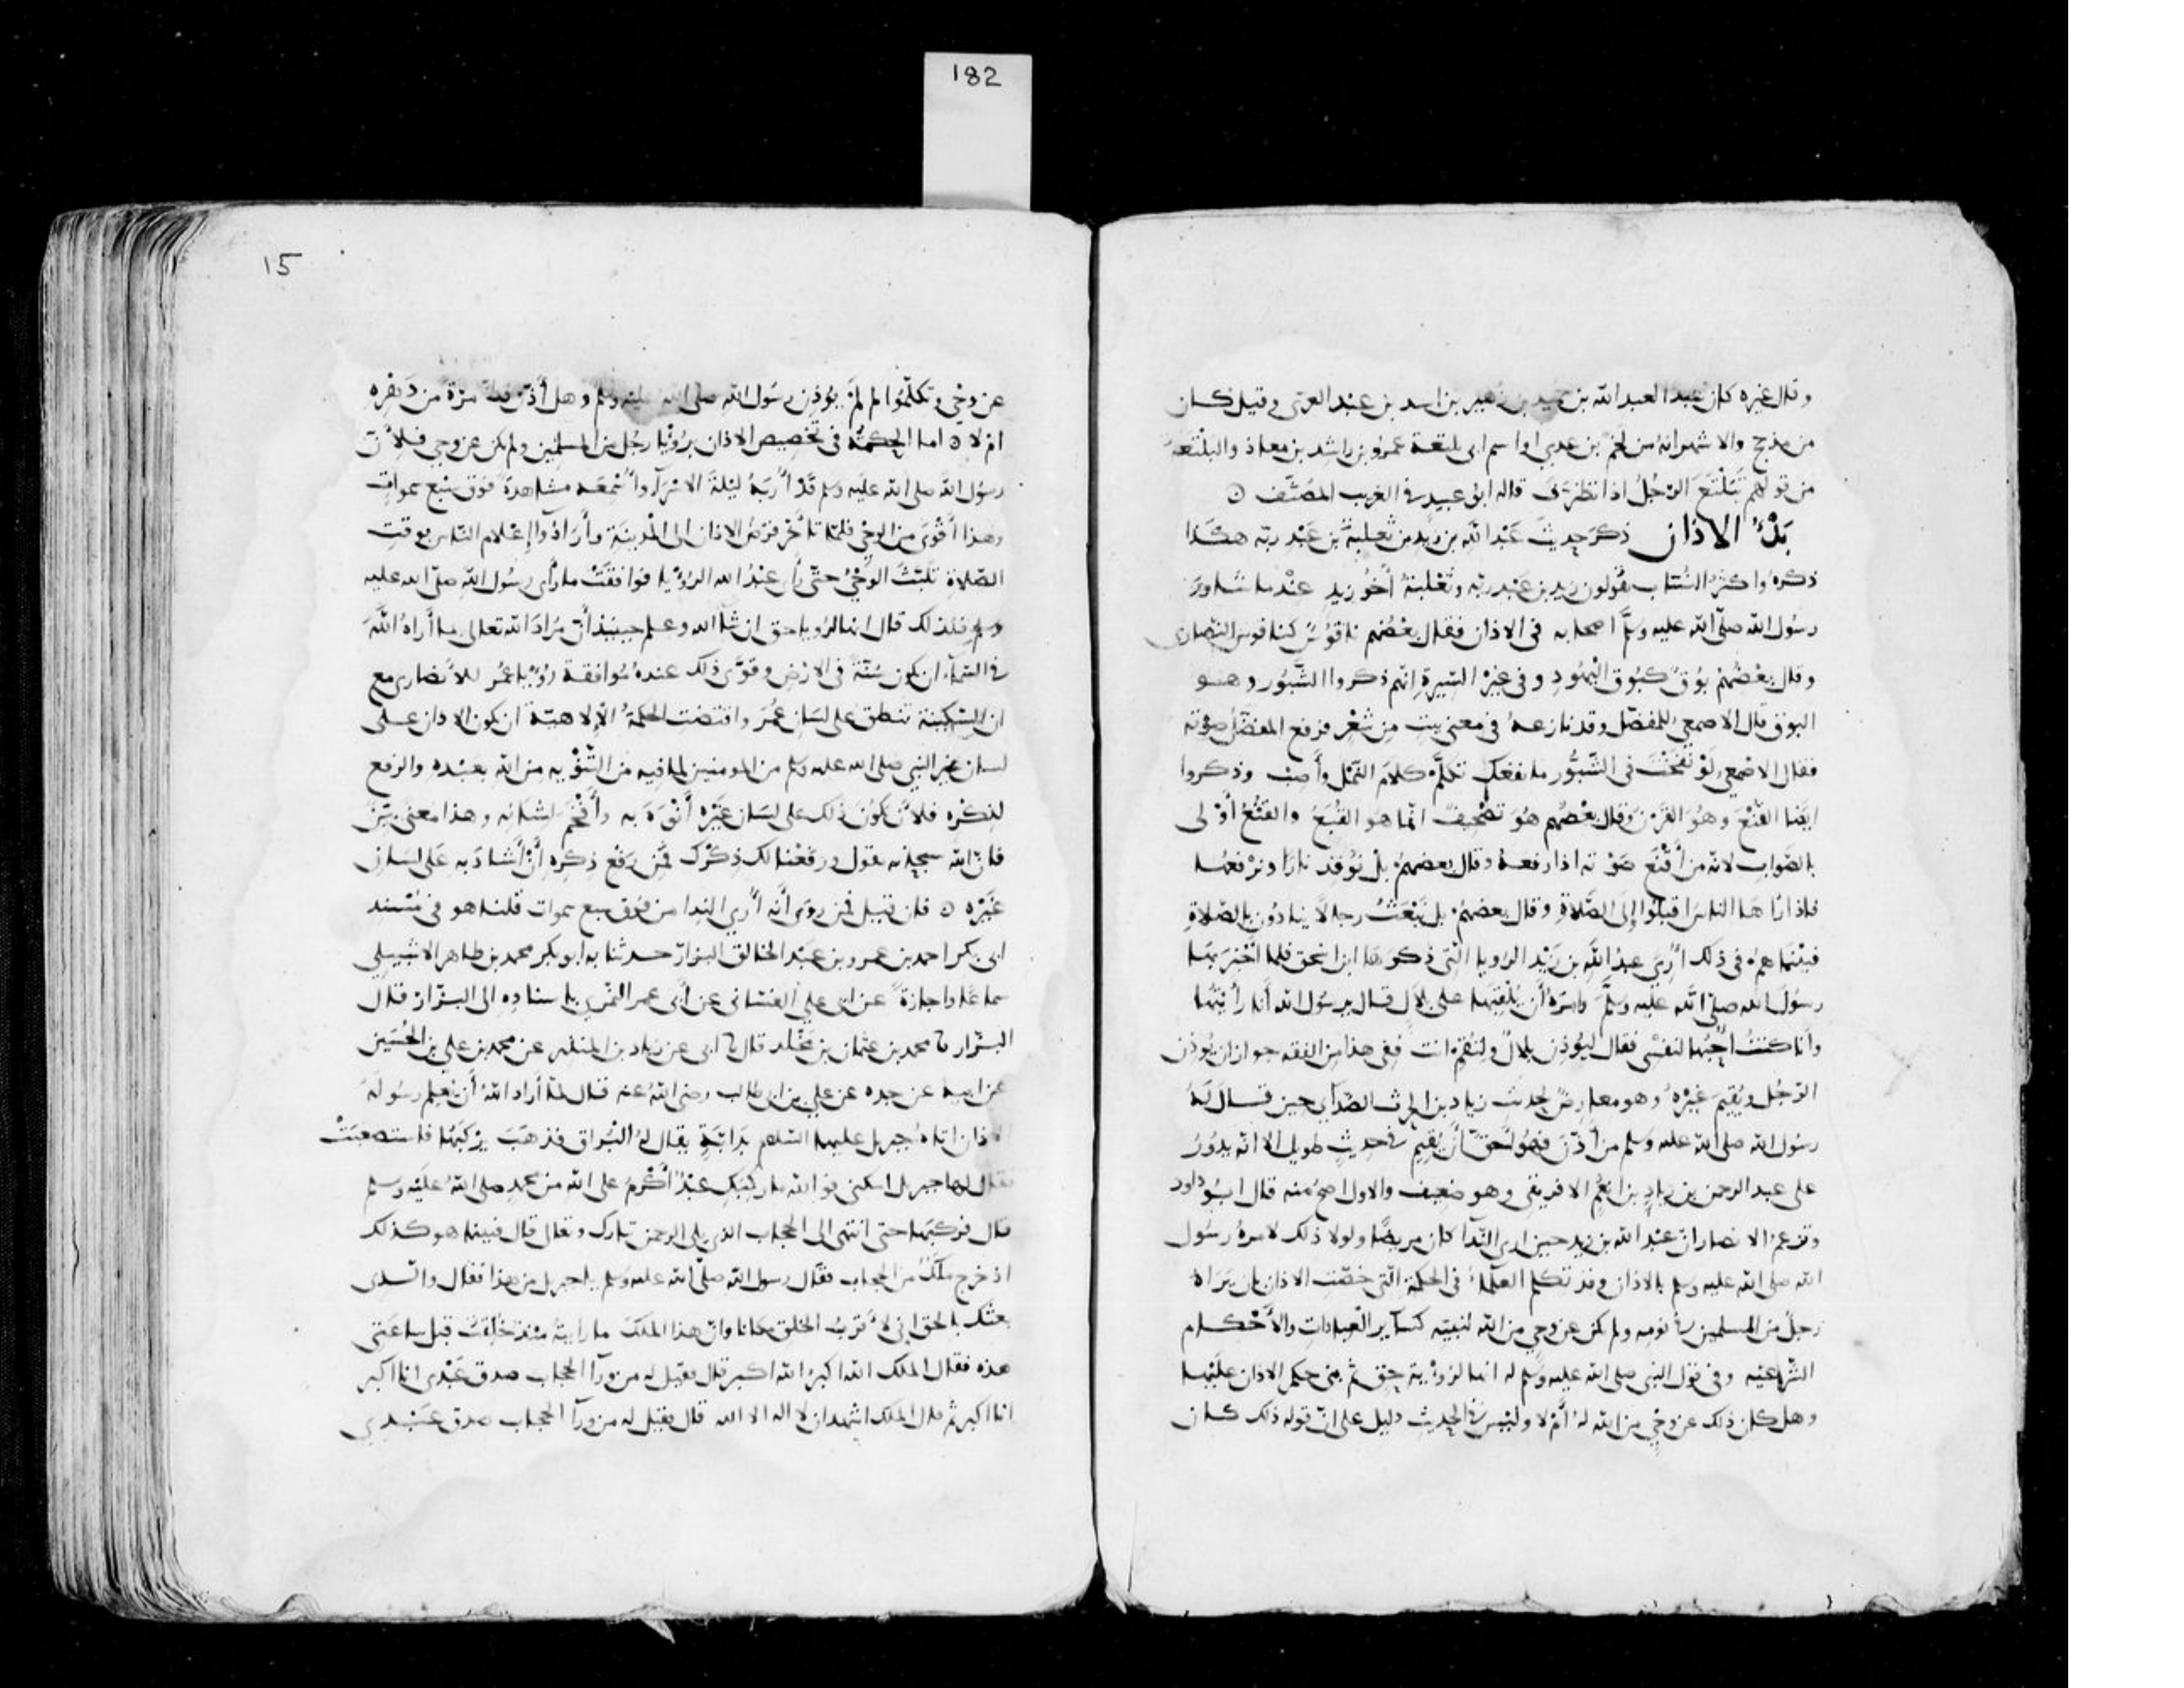 182
وقال غيره كان عبدا لعبد الله بن حميد بن زهير بن اسد بن عبد العزى وقيل كان
من مذحج والاشهر انه من لخم بن عدي واسم ابى بلتعة عمرو بن راشد بن معاذ والبلتعة
من قولهم تَبَلْتَعَ الرّجُلُ اذا تظرّفَ قاله ابو عبيد في الغريب المصنّف ⊙
بَدْءُ الاذان ذكرَ حديثَ عَبْدالله بن زيد بن ثعلبةَ بن عَبْد ربّه هكذا
ذكرهُ واكثرُ النُسّاب يقُولون زيد بن عَبْد ربّه وثَعْلبَةُ أخُو زيدٍ عنْدما شاورَ
رسُول الله صلّى الله عليه وسلّم اصحابه فى الاذان فقال بعْضُهم ناقوُسٌ كناقوس النصارى
وقال بعْضُهُمْ بُوقٌ كبُوق اليَهُودِ وفى غير السّيرةِ انّهم ذكروا الشَّبُّور وهو
البوق قال الاصمعى للمفضّل وقد نازعهُ فى معنى بيت من شعْر فرفع المفضّلُ صوْته
فقال الاصمعي لَوْ نَفَخْتَ فى الشَّبُّور ما نفعك تكلَّم كلامَ النَّمْل وأصِبْ وذكروا
ايضا القُنْعَ وهُوَ القَرْن وقال بعْضُهم هُوَ تصْحِيفٌ انّما هو القُبَعُ والقُنْعُ أوْلى
بالصَّوابِ لانّه من أقْنَعَ صَوْته اذا رفعهُ وقال بعضهمُ بلْ نُوقِد نارًا ونرْفعُها
فاذا رآها الناسُ اقبلُوا إلى الصّلاةِ وقال بعضهمُ بل نَبْعَثُ رجالًا ينادُون بالصّلاةِ
فبَيْنما همْ فى ذلك أُرِيَ عبدُالله بن زَيْد الرويا التى ذكرَها ابن اسحق فلما اخْبَرَ بها
رسُولَ الله صلّى الله عليْه وسلّمَ وامَرَهُ أن يُلْقِيَها على بِلالٍ قال يرسُول الله أنا رأيْتُها
وأنا كنتُ أحِبُّها لنفْسِى فقال لِيُؤذِن بلالٌ ولتُقِمْ انت ففى هذا من الفقه جواز ان يُوذّن
الرّجُل ويُقيمَ غَيْرُهُ وهو معارضٌ لحديث زياد بن الحرث الصّداى حين قال لهُ
رسُول الله صلى الله عليه وسلم من أذّنَ فهُو أحَقّ أنْ يُقِيم فى حديثٍ طويل الا انّه يدُورُ
على عبد الرحمن بن زيادِ بن انعُم الافريقى وهو ضعيف والاول اصحّ منه قال ابُو داود
وتزعمُ الانصار انّ عبْدالله بن زيد حين اُري النّدآ كان مريضًا ولولا ذلك لامرهُ رسُول
الله صلى الله عليه وسلم بالاذان وقد تكلم العُلماءُ فى الحكمة التى خصّت الاذان بان يَرَاهُ
رجلٌ من المسلمين فى نومه ولم يكن عن وحيٍ من الله لنبيّه كسآير العبادات والأحْكام
الشّرْعيّه وفى قوْل النبى صلى الله عليه وسلم له انها لرؤْية حقّ ثم بنى حكم الاذان عليْها
وهل كان ذلك عن وحْيٍ من الله لهُ أمْ لا وليْس فى الحديث دليل على انّ قوله ذلك كان
15
عن وحْيٍ وتكلّمُوا لِمَ لَمْ يوُذِن رسُول الله صلى الله عليه وسلم وهل أذّنَ قطّ مرّةً من دَهْرِه
امْ لا ⊙ اما الحكمةُ فى تخصيص الاذان برُؤيَا رجُلٍ من المسلمين ولم يكن عن وحي فلأنّ
رسوُل الله صلى الله عليْه وسلم قدْ أُرِيَهُ ليْلةَ الاسْرآءِ وأُسْمِعَه مشاهدةً فوْق سبْع سمواتٍ
وهذا أقْوَى من الوحْي فلمّا تأخّر فرْضُ الاذان الى المدينَة وأرادُوا إعْلام النّاس بوقتِ
الصّلاة تلَبّثَ الوَحْيُ حتّى رأى عبْدُ الله الرُؤْيا فوافقَتْ ما رأى رسُول الله صلّى الله عليه
وسلم فلذلك قال انها لرويا حق ان شا الله وعلم حينئذ أنّ مُرَادَ الله تعالى بما أراهُ اللّه
فى السّمآءِ ان يكون سُنّةً فى الارْضِ وقوّى ذلك عندهُ مُوافقة رُؤْيا عُمر للأنصارى مع
ان السّكينة تنطق على لسَانِ عُمَرَ واقتضت الحكمةُ الإلاهيّة ان يكون الاذان على
لسان غيْر النبي صلى الله عليه وسلم من المومنين لما فيه من التّنْوِيه من الله بعبْده والرفع
لذِكْره فلأنْ يكونَ ذلك على لسَان غَيْره أنْوَهَ به وأفْخَم لشانِه وهذا معنًى بَيّنٌ
فانّ الله سبحانه يقول ورفعْنا لك ذكْرَك فمَنْ رفْع ذكْره أنْ أشادَ به عَلى لسَانِ
غَيْرِه ⊙ فان قيل فمن رَوى أنه أُري الندا من فوْق سبع سموات قلنا هو فى مُسْند
ابى بكر احمد بن عمرو بن عبْد الخالق البزار حدثنا به ابو بكر محمد بن طاهر الاشبيلي
سماعًا واجازةً عن ابي علي الغسّانى عن أبى عمر النّمَري باسنادِه الى البزّار قال
البزّار نا محمد بن عثمان بن مَخْلد قال نا ابى عن زياد بن المنذر عن محمد بن علي بن الحُسَين
عن ابيه عن جده عن علي بن ابى طالب رضى اللهُ عنه قال لمّا أراد اللهُ أن يُعلِم رسُولهُ
الاذان اتاهُ جبريل عليهما السّلام بدَابّةٍ يقال لهُ البُراق فذهبَ يرْكبُها فاستصعبَتْ
فقال لها جبريل اسكنى فوالله ما ركِبَكِ عبْدٌ أكْرمُ على الله من محمدٍ صلى اللهُ عليْه وسلم
قال فركبها حتى انتهى الى الحجاب الذى يلى الرحمن تبارك وتعالى قال فبينا هو كذلك
اذ خرج ملَكٌ من الحجاب فقال رسول الله صلّى الله عليه وسلم يا جبريل من هذا فقال والذى
بعثك بالحق انى لأَقْرَبُ الخلق مكانا وان هذا الملَكَ ما رايتهُ منْذ خُلِقتُ قبل ساعتى
هذه فقال الملك الله اكبرُ الله اكبر قال فقيل له من ورآ الحجاب صدق عَبْدى انا اكبر
انا اكبر ثم قال الملك اشهد ان لا اله الا الله قال فقيل له من ورآ الحجاب صدق عَبْدي